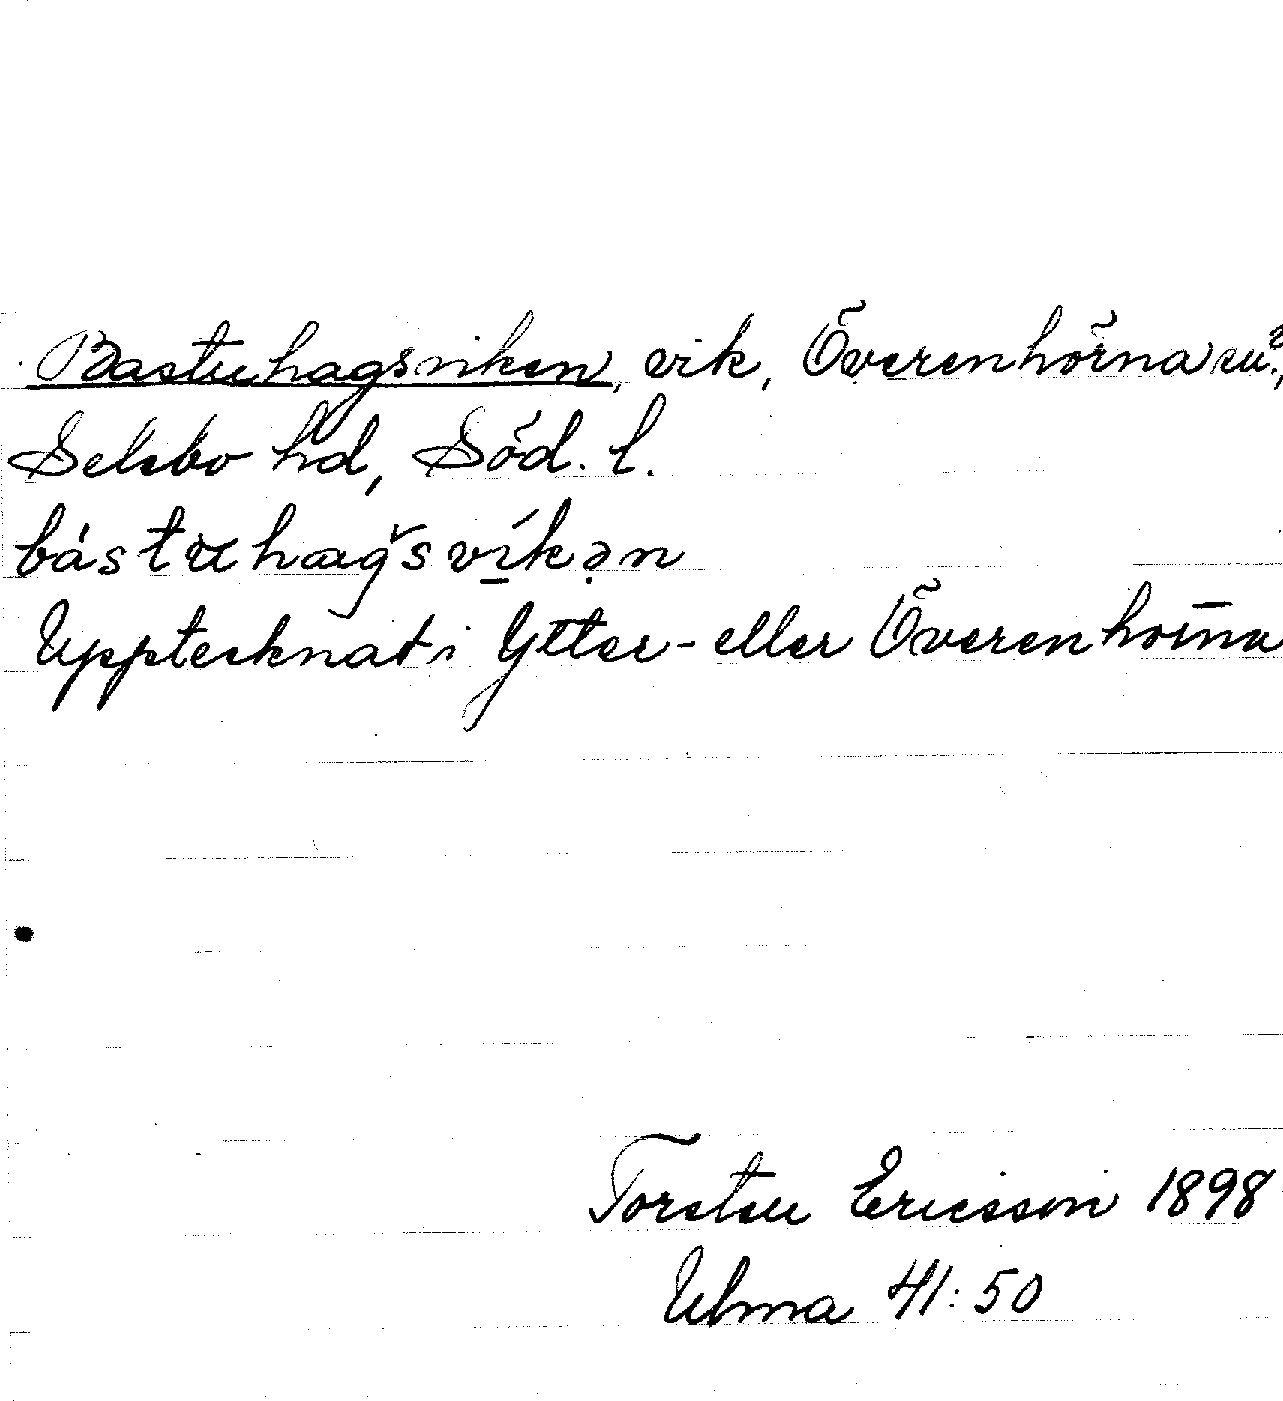 Bastuhagsviken, vik, Överenhörna sn?,
Selebo hd, Söd. l.
bástuhagsvíkən
Upptecknat i Ytter- eller Överenhörna
Torsten Ericsson 1898
Ulma 41:50